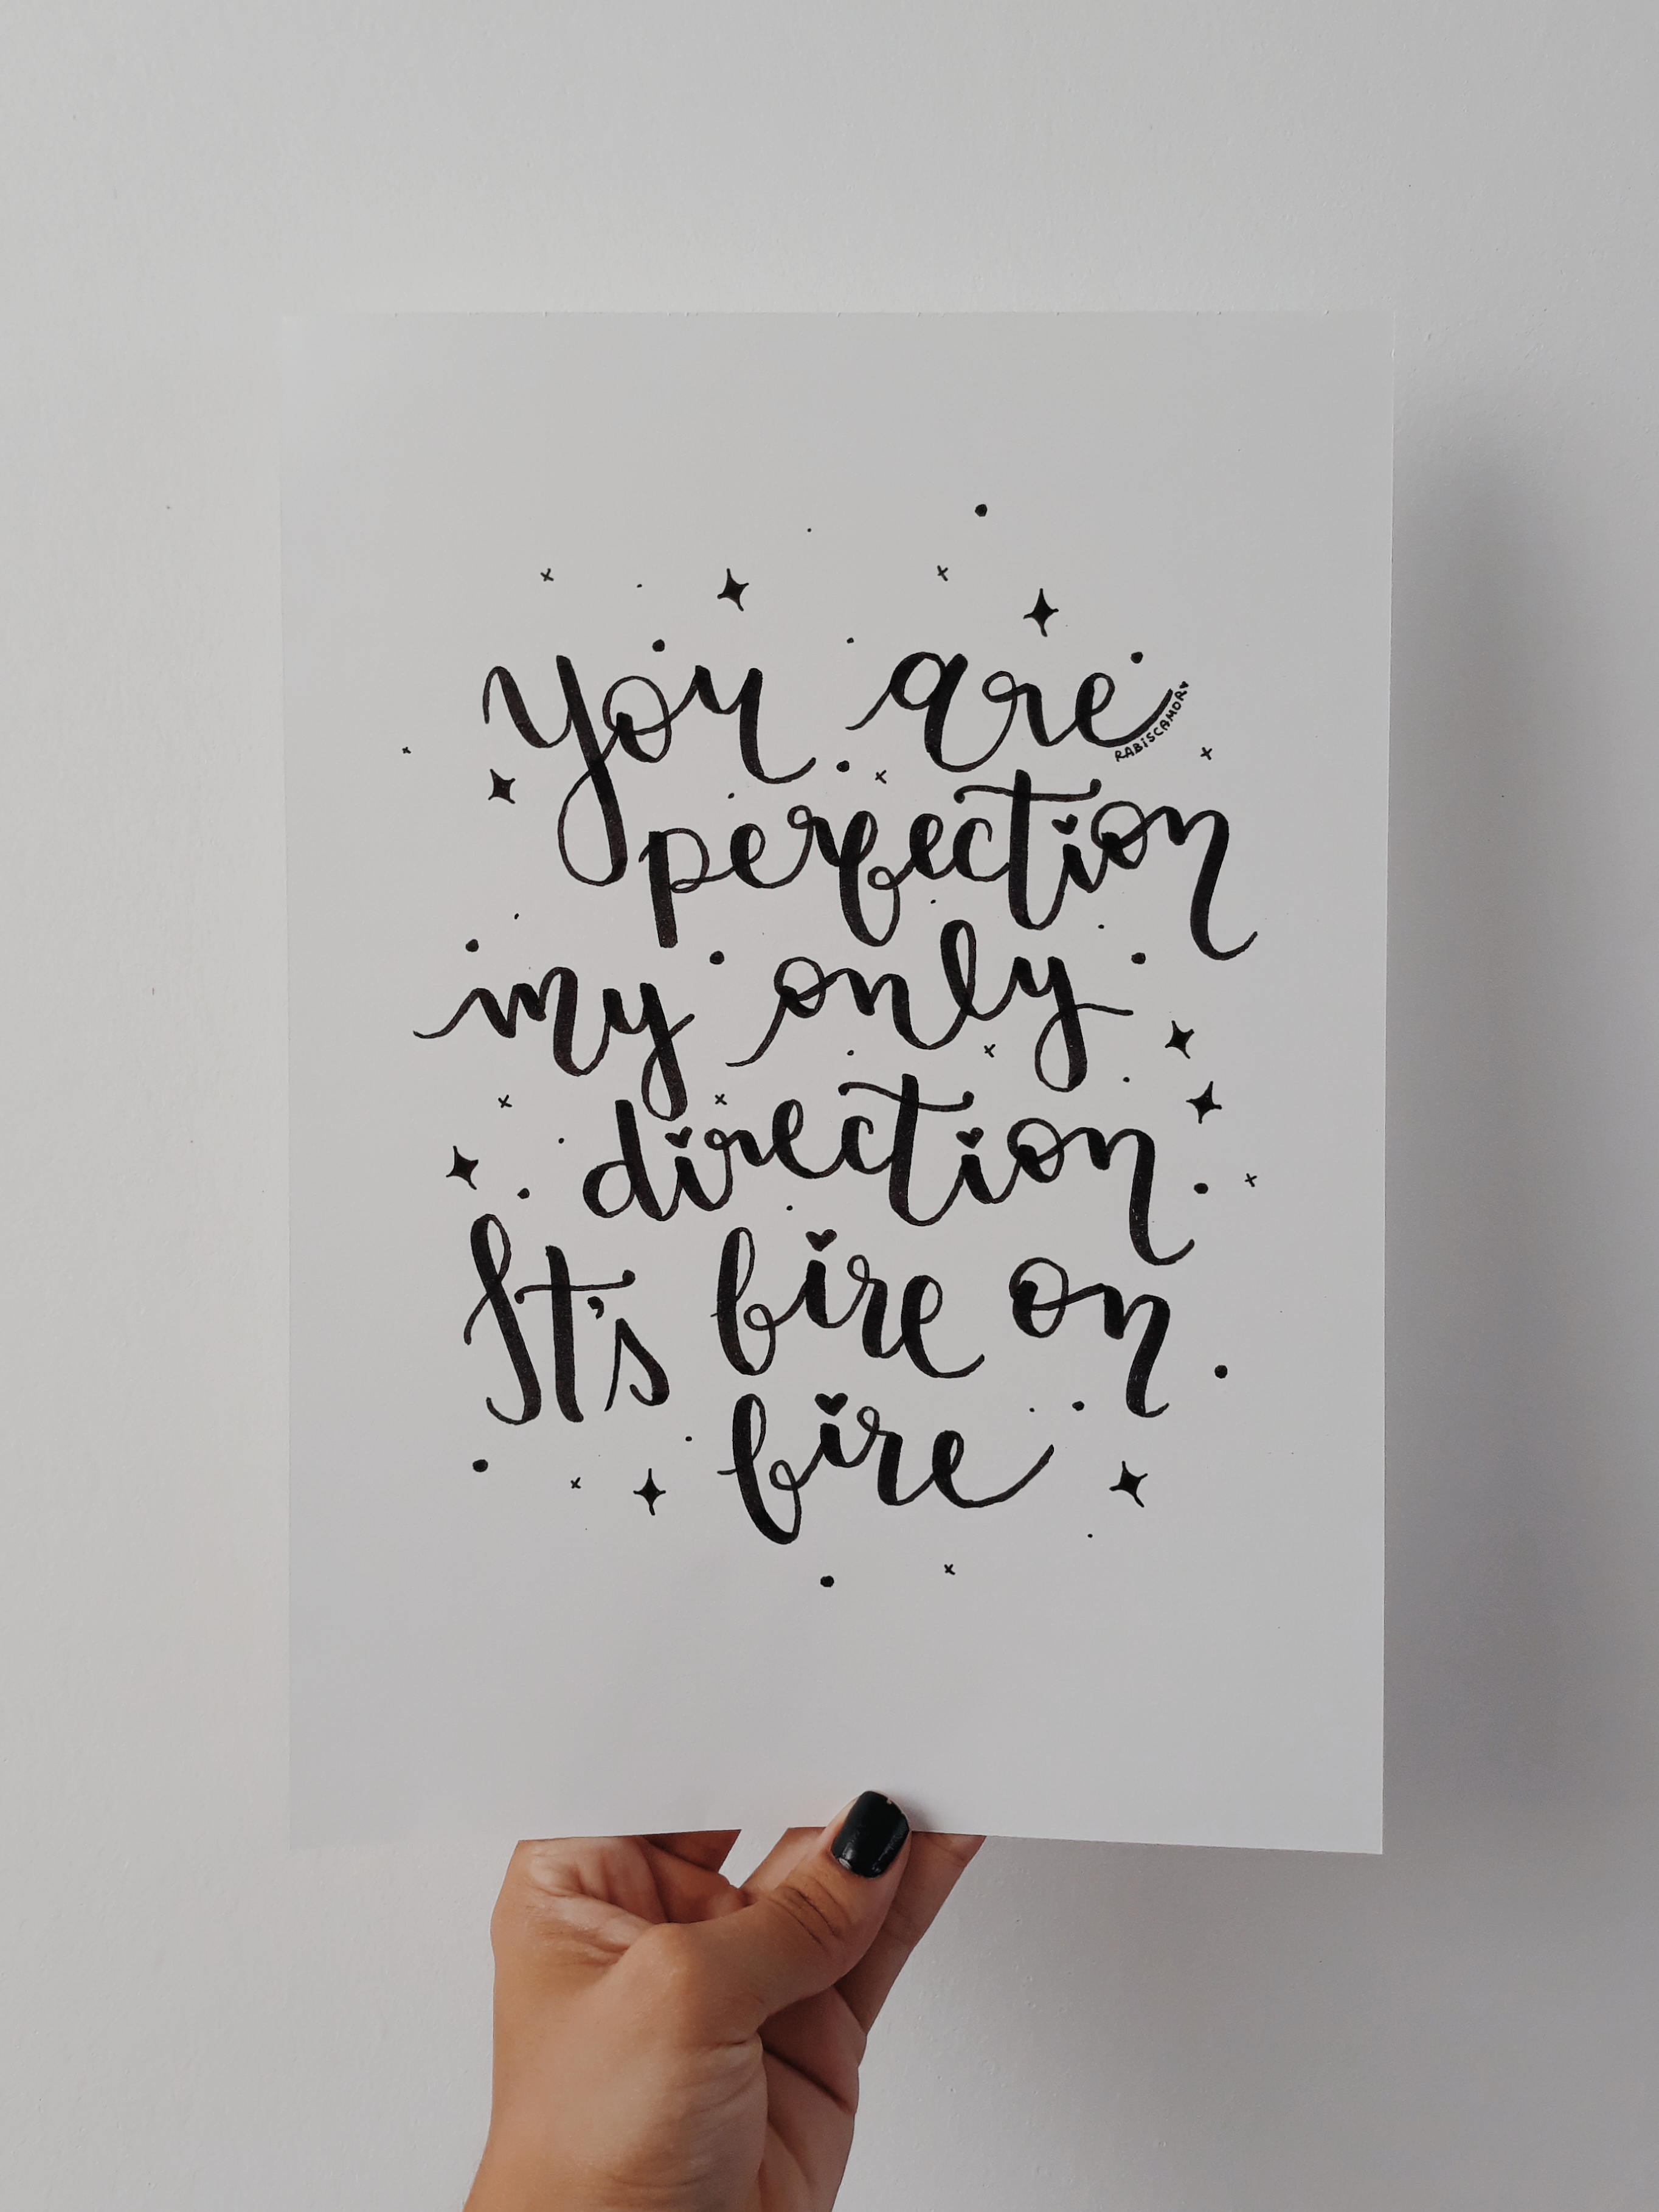 you are
RABISCAMOR
perfection
my only
direction
It's fire on
fire